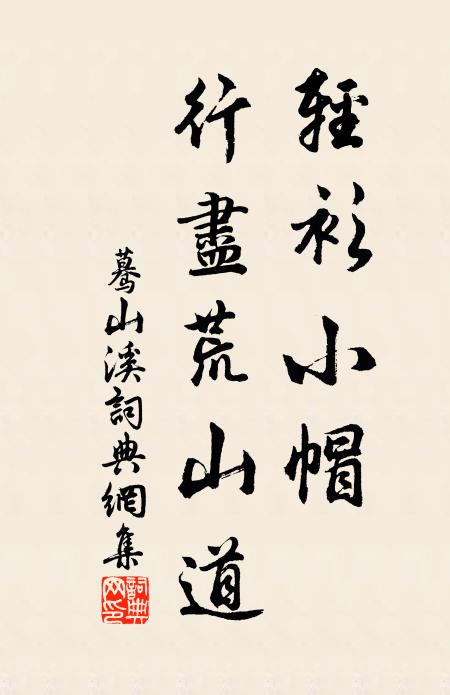 輕衫小帽
行盡荒山道
驀山溪詞典網集
詞典网印